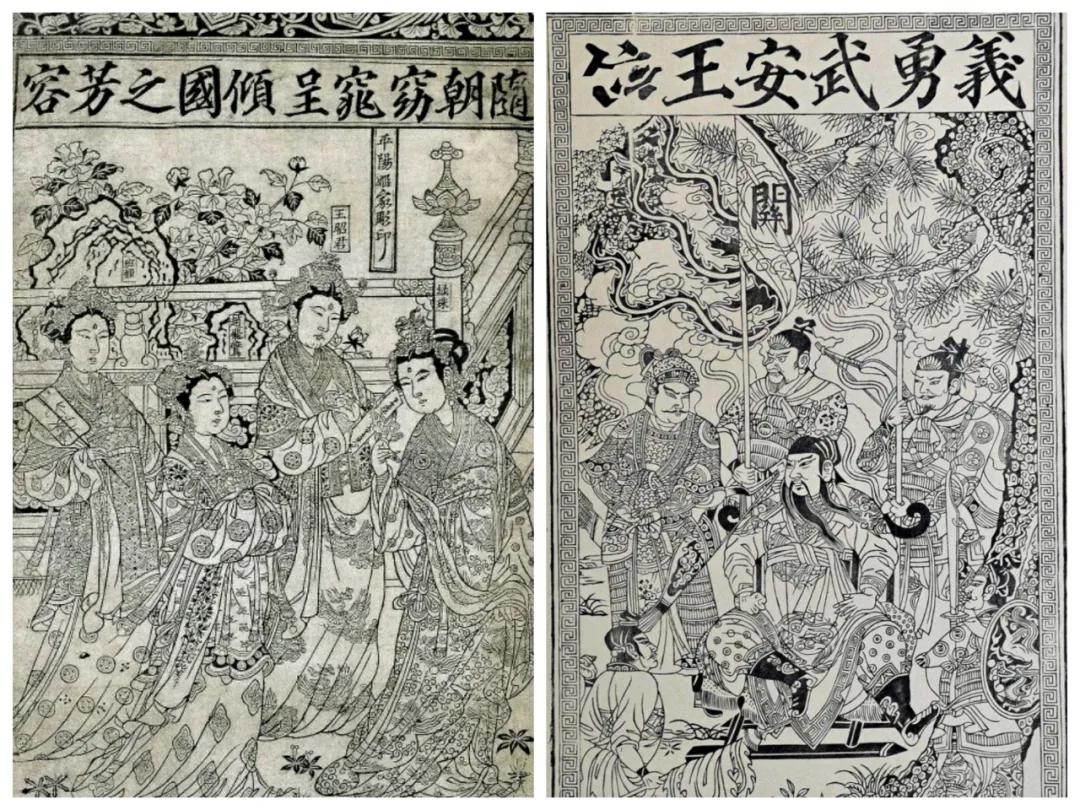 隨朝窈窕呈傾國之芳容
平陽姬家彫印
王昭君
綠珠
義勇武安王位
關